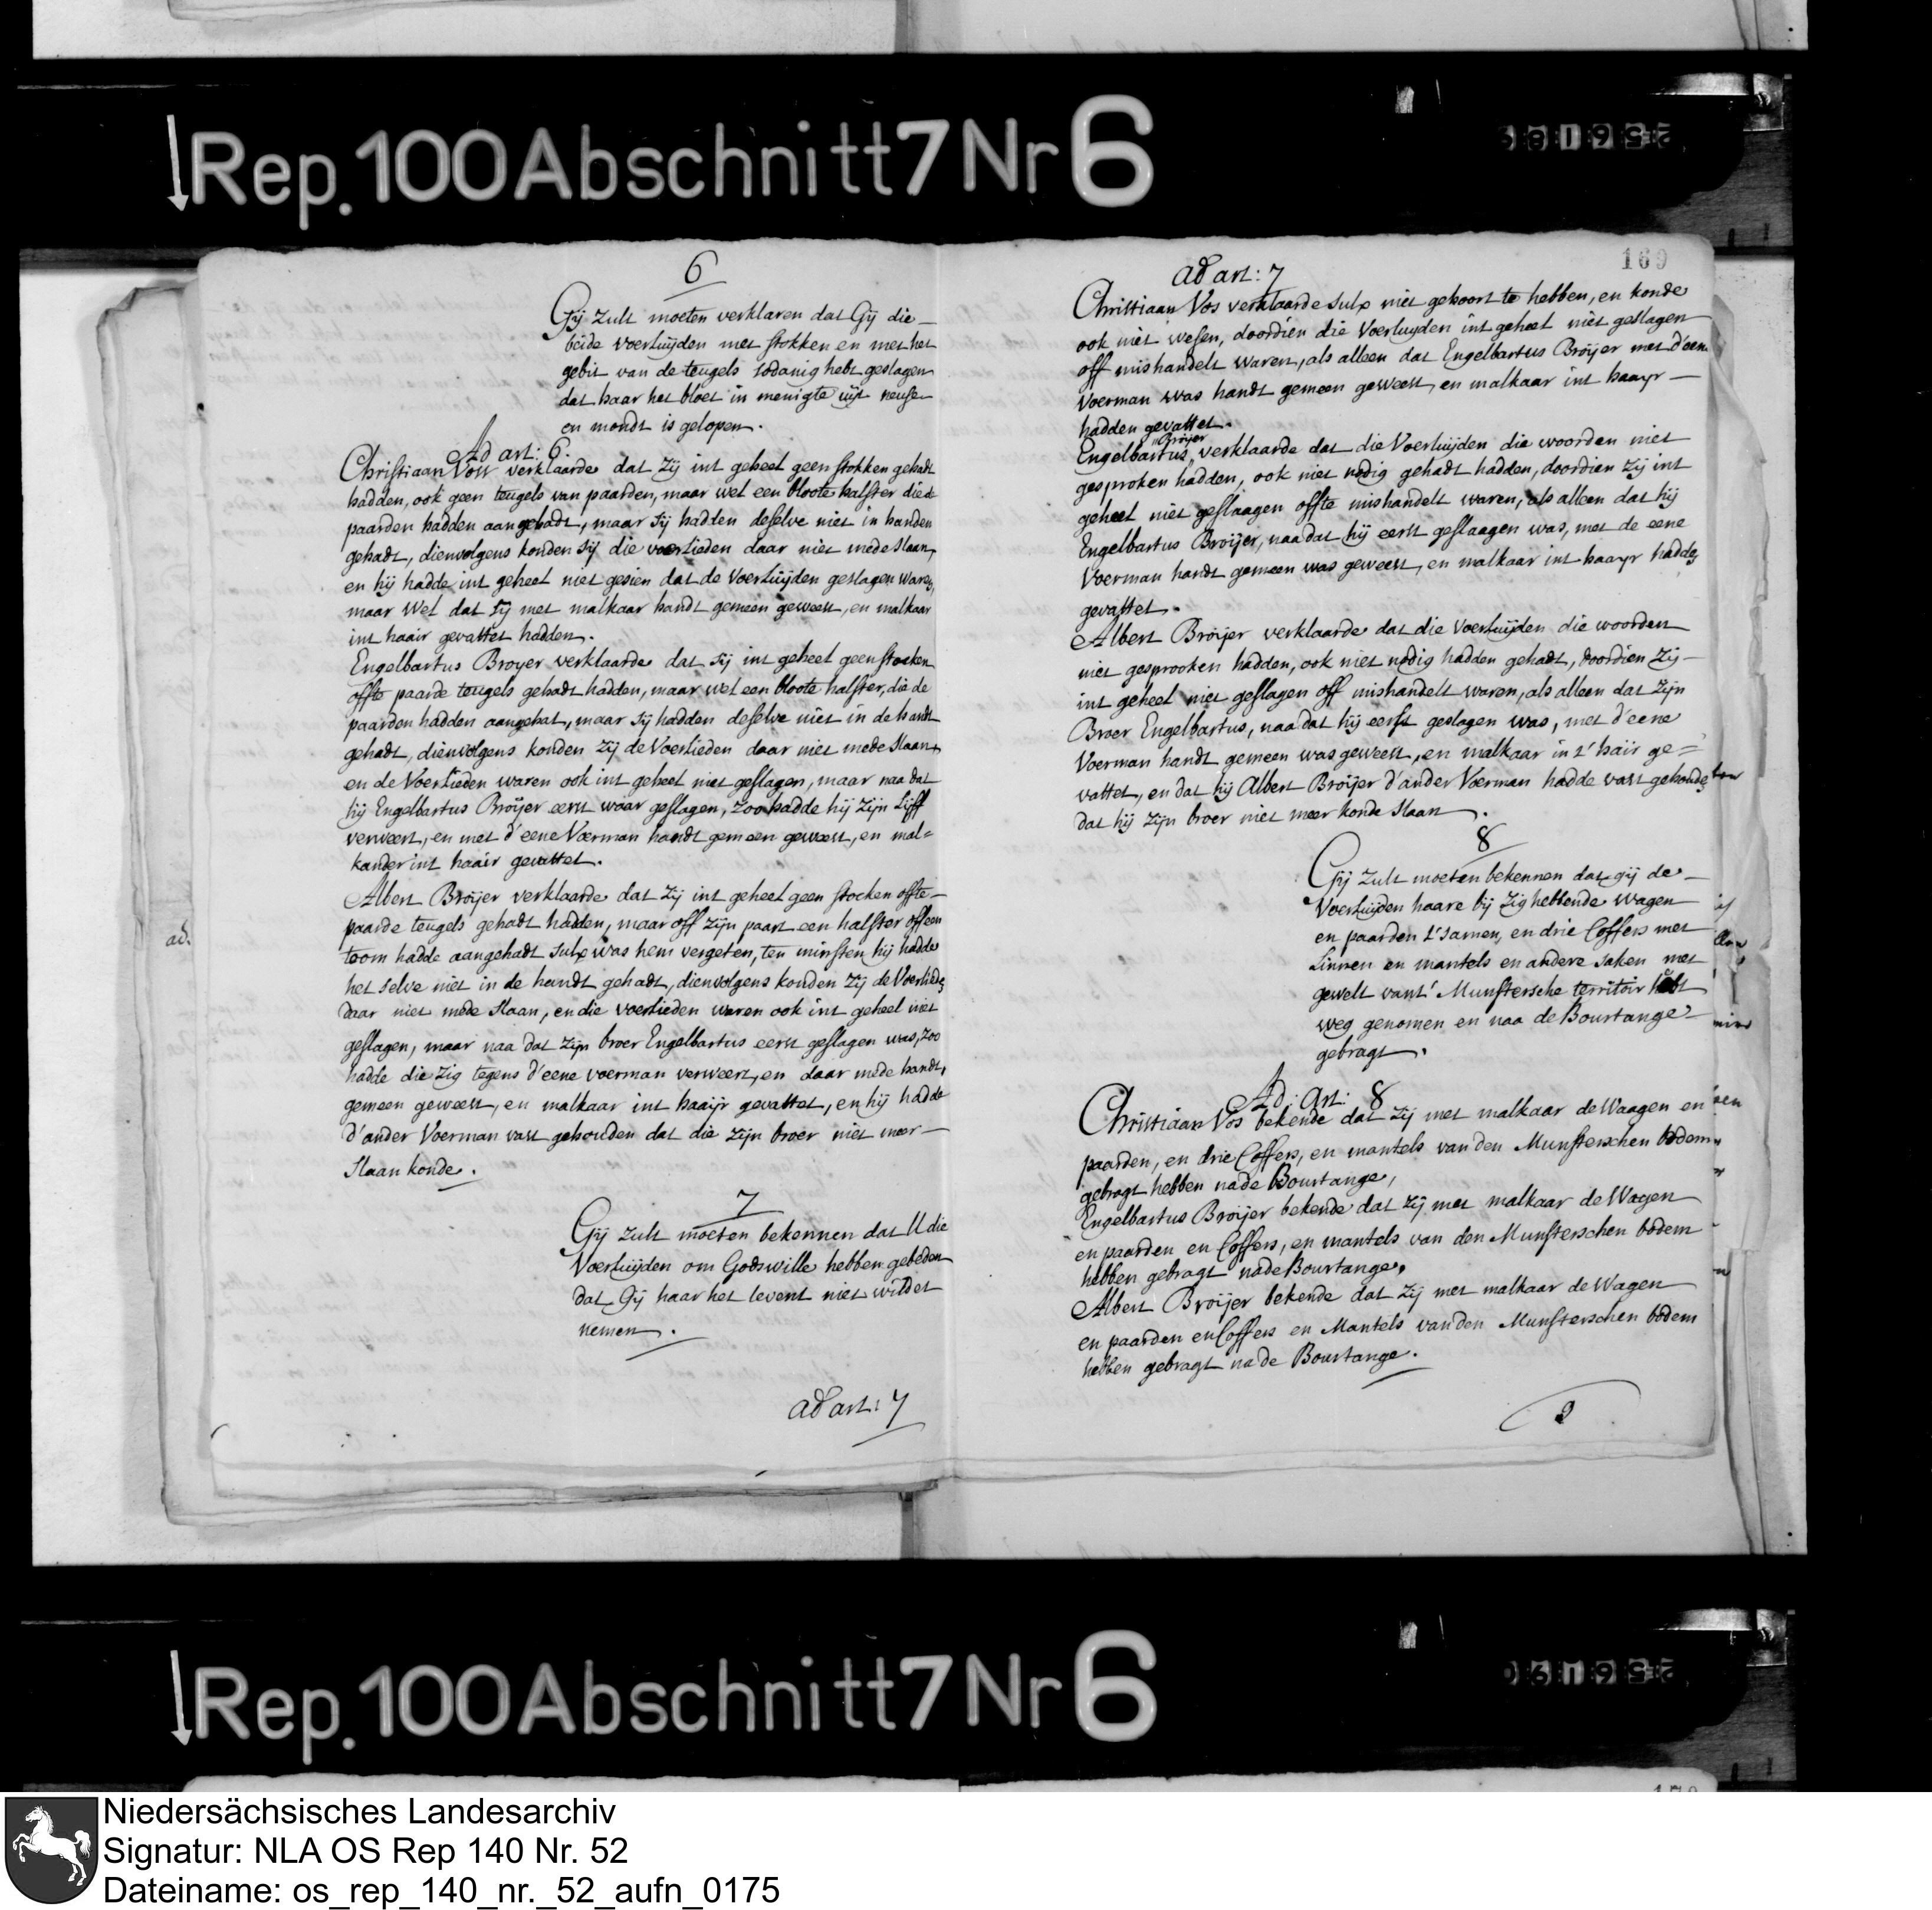 Rep. 100 Abschnitt 7 Nr 6
6
Gij zult moeten verklaren dat Gij die
beide voerluijden met stokken en met het
gebit van de teugels sodanig hebt geslagen
dat haar het bloet in menigte uijt neuse
en mondt is gelopen.
Ad art: 6.
Christiaan Voss verklaarde dat zij int geheel geen stokken gehadt
hadden, ook geen teugels van paarden, maar wel een bloote halster die de
paarden hadden aangehadt, maar sij hadden deselve niet in handen
gehadt, dienvolgens konden sij die voerlieden daar niet mede slaan,
en hij hadde int geheel niet gesien dat de Voerluijden geslagen waren,
maar wel dat sij met malkaar handt gemeen geweest, en malkaar
int haair gevattet hadden.
Engelbartus Broyer verklaarde dat sij int geheel geen stocken
offte paarde teugels gehadt hadden, maar wel een bloote halster, die de
paarden hadden aangehat, maar sij hadden deselve niet in de handt
gehadt, dienvolgens konden zij de Voerlieden daar niet mede slaan,
en de Voerlieden waren ook int geheel niet geslagen, maar naa dat
hij Engelbartus Broijer eerst waar geslagen, zoo hadde hij zijn Lijff
verweert, en met d'eene Voerman handt gemeen geweest, en mal=
kander int haair gevattet.
Albert Broijer verklaarde dat zij int geheel geen stocken offte
paarde teugels gehadt hadden, maar off zijn paart een halfster off een
toom hadde aangehadt sulx was hem vergeten, ten minsten hij hadde
het selve niet in de handt gehadt, dienvolgens konden zij de Voerlieden
daar niet mede slaan, en die voerlieden waren ook int geheel niet
geslagen, maar naa dat zijn broer Engelbartus eerst geslagen was, zoo
hadde die zig tegens d'eene voerman verweert, en daar mede handt,
gemeen geweest, en malkaar int haaijr gevattet, en hij hadde
d'ander Voerman vast gehouden dat die zijn broer niet meer
slaan konde.
7
Gij zult moeten bekennen dat U die
Voerluijden om Godswille hebben gebeden
dat Gij haar het levent niet wildet
nemen.
ad art: 7
ad.
169
ad art: 7
Christiaan Vos verklaarde sulx niet gehoort te hebben, en konde
ook niet wesen, doordien die Voerluyden int geheel niet geslagen
off mishandelt waren, als alleen dat Engelbartus Broijer met d'een
Voerman was handt gemeen geweest, en malkaar int haayr
hadden gevattet.
Broijer
Engelbartus verklaarde dat die Voerluijden die woorden niet
gesproken hadden, ook niet nodig gehadt hadden, doordien zij int
geheel niet geslaagen offte mishandelt waren, als alleen dat hij
Engelbartus Broijer, naa dat hij eerst geslaagen was, met de eene
Voerman handt gemeen was geweest, en malkaar int haayr hadden
gevattet.
Albert Broijer verklaarde dat die Voerluijden die woorden
niet gesprooken hadden, ook niet nodig hadden gehadt, doordien zij
int geheel niet geslagen off mishandelt waren, als alleen dat zijn
Broer Engelbartus, naa dat hij eerst geslagen was, met d'eene
Voerman handt gemeen was geweest, en malkaar in t' hair ge=
vattet, en dat hij Albert Broijer d'ander Voerman hadde vast gehouden
dat hij zijn broer niet meer konde slaan.
8
Gij zult moeten bekennen dat gij de
Voerluijden haare bij zig hebbende wagen
en paarden t' samen, en drie Coffers met
Linnen en mantels en andere saken met
gewelt vant' Munstersche territoir hebt
weg genomen en naa de Bourtange
gebragt.
Ad: art: 8
Christiaan Vos bekende dat zij met malkaar de Waagen en
paarden, en drie Coffers, en mantels van den Munsterschen bodem
gebragt hebben na de Bourtange,
Engelbartus Broijer bekende dat zij met malkaar de Wagen
en paarden en Coffers, en mantels van den Munsterschen bodem
hebben gebragt na de Bourtange,
Albert Broijer bekende dat zij met malkaar de Wagen
en paarden en Coffers en Mantels van den Munsterschen bodem
hebben gebragt na de Bourtange.
9
Rep. 100 Abschnitt 7 Nr 6
Niedersächsisches Landesarchiv
Signatur: NLA OS Rep 140 Nr. 52
Dateiname: os_rep_140_nr._52_aufn_0175